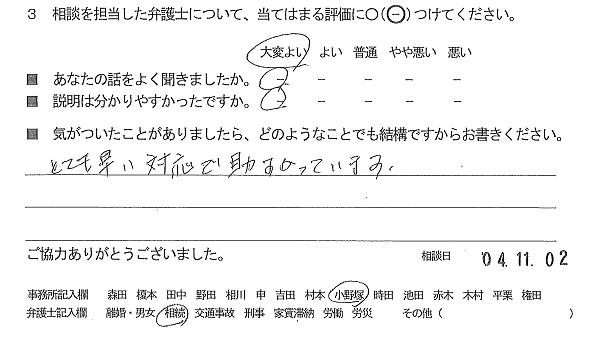 3 相談を担当した弁護士について、当てはまる評価に○(⊖)つけてください。
大変よい よい 普通 やや悪い 悪い
■ あなたの話をよく聞きましたか。 − − − − −
■ 説明は分かりやすかったですか。 − − − − −
■ 気がついたことがありましたら、どのようなことでも結構ですからお書きください。
とても早い対応で助かっています。
ご協力ありがとうございました。 相談日 '04.11.02
事務所記入欄 森田 榎本 田中 野田 相川 申 吉田 村本 小野塚 時田 池田 赤木 木村 平栗 権田
弁護士記入欄 離婚・男女 相続 交通事故 刑事 家賃滞納 労働 労災 その他( )